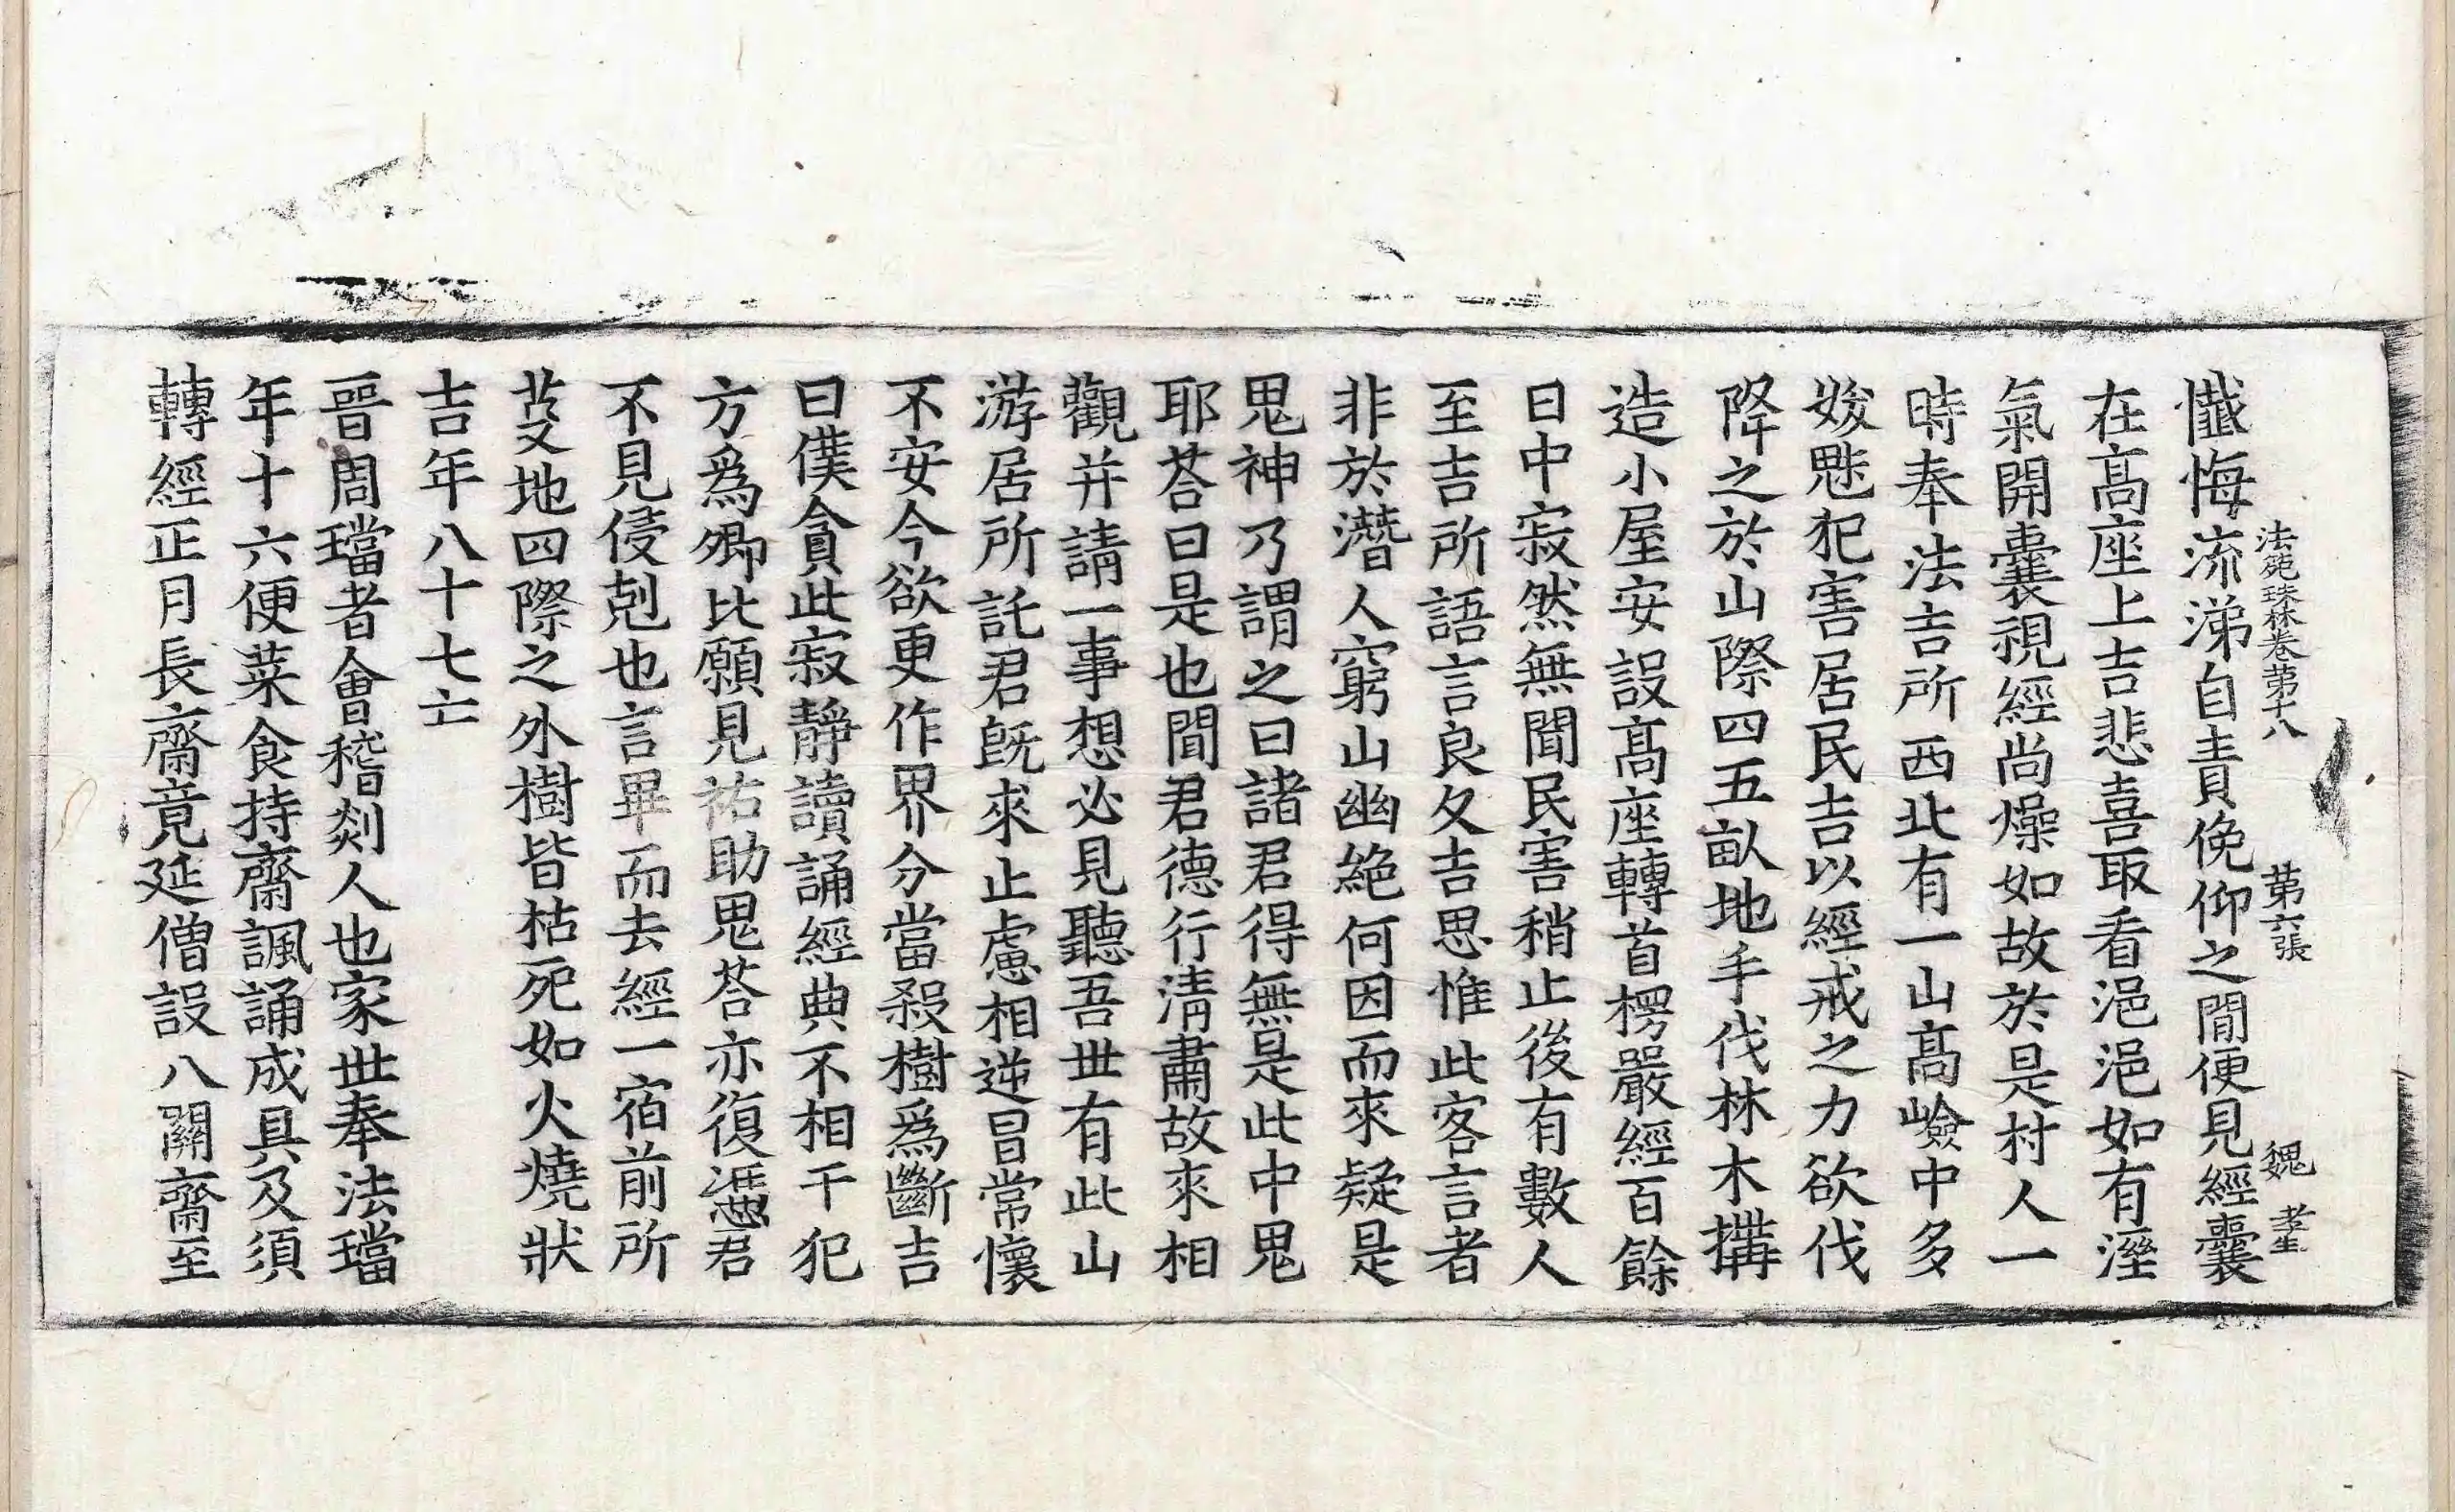 懺悔流涕自責俛仰之閒便見經囊
法苑珠林卷苐十八 苐六張 魏 孝生
在髙座上吉悲喜取看浥浥如有溼
氣開囊視經尚燥如故於是村人一
時奉法吉所西北有一山髙嶮中多
妭魅犯害居民吉以經戒之力欲伐
降之於山際四五畝地手伐林木搆
造小屋安設髙座轉首楞嚴經百餘
日中寂然無聞民害稍止後有數人
至吉所語言良久吉思惟此客言者
非於濳人窮山幽絶何因而來疑是
鬼神乃謂之曰諸君得無是此中鬼
耶荅曰是也聞君德行清肅故來相
觀并請一事想必見聽吾世有此山
游居所託君旣來止慮相逆冒常懷
不安今欲更作界分當殺樹爲斷吉
曰僕貪此寂靜讀誦經典不相干犯
方爲卿比願見祐助鬼荅亦復憑君
不見侵剋也言畢而去經一宿前所
芟地四際之外樹皆枯死如火燒狀
吉年八十七亡
晉周璫者會稽剡人也家世奉法璫
年十六便菜食持齋諷誦成具及須
轉經正月長齋竟延僧設八關齋至